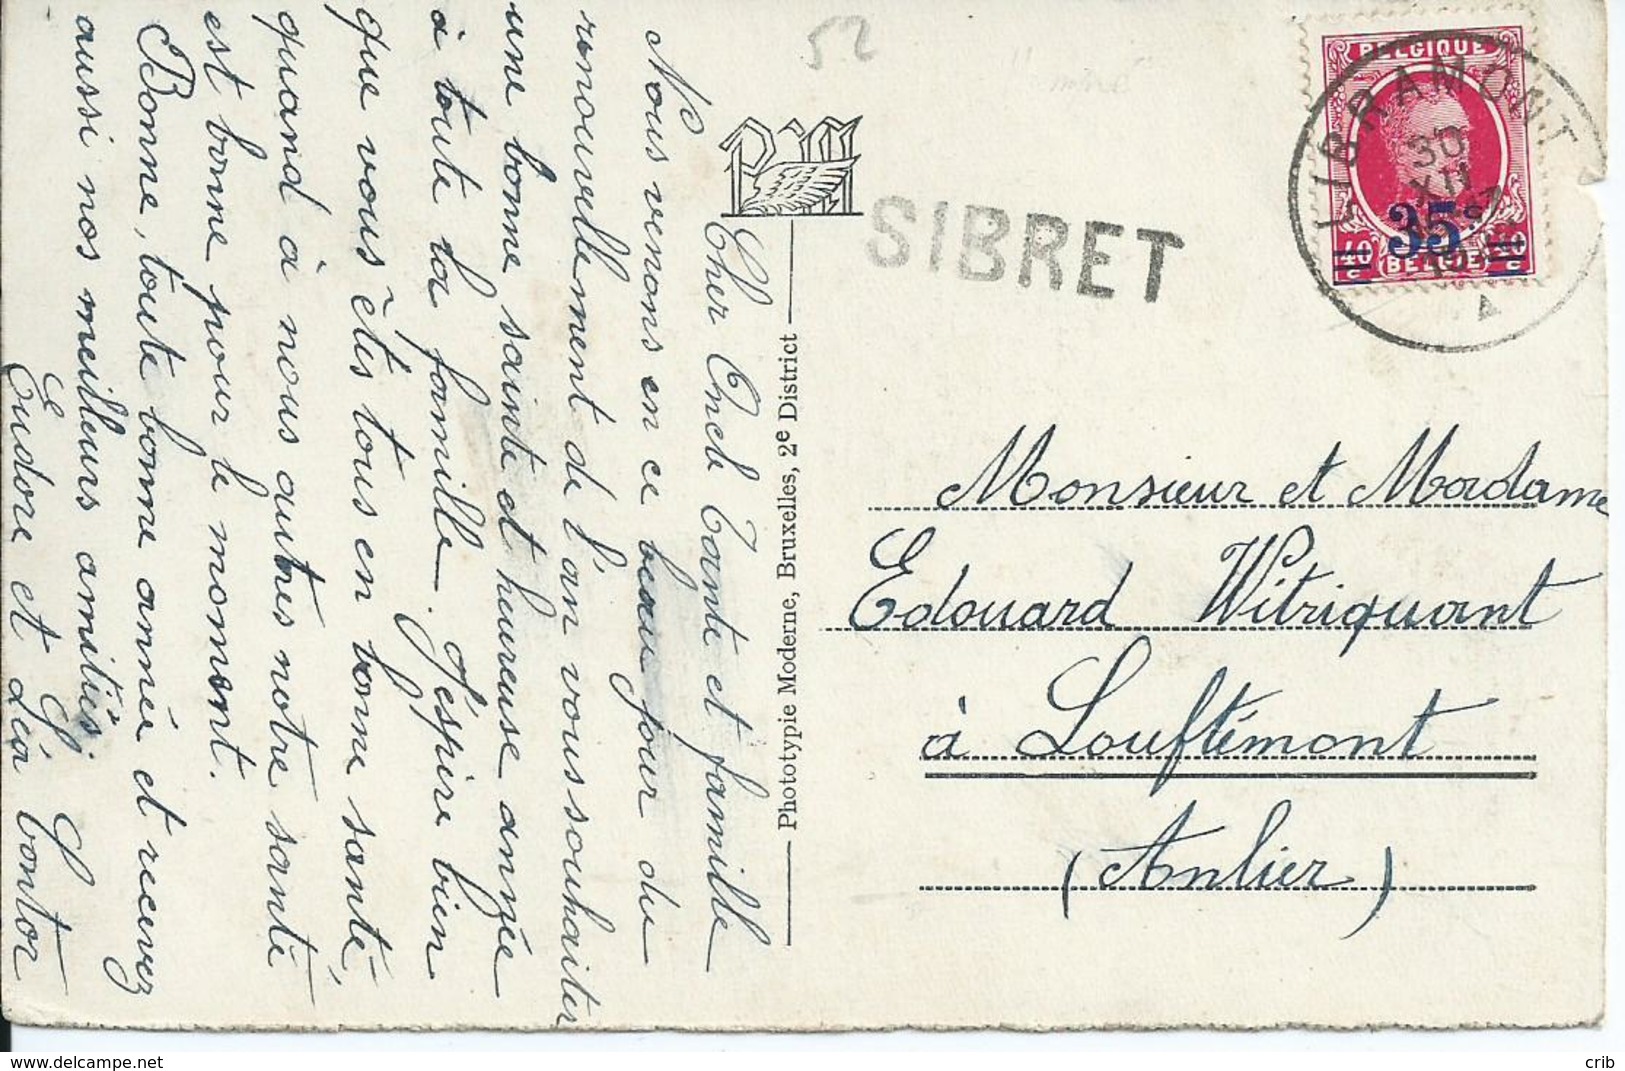 52
Cher Oncle Tante et famille
Nous venons en ce beau jour du
renouvellement de l'an vous souhaiter
une bonne sainte et heureuse année
à toute la famille. J'éspère bien
que vous êtes tous en bonne santé,
quand à nous autres notre santé
est bonne pour le moment.
Bonne, toute bonne année et recevez
aussi nos meilleurs amitiés.
Eudore et Léa
PIM
Phototypie Moderne, Bruxelles, 2e District
SIBRET
BELGIQUE
35c
40 c (BELGIE) 40 c
LIBRAMONT
30
XII
Monsieur et Madame
Edouard Witriquant
à Louftémont
(Anlier)
crib